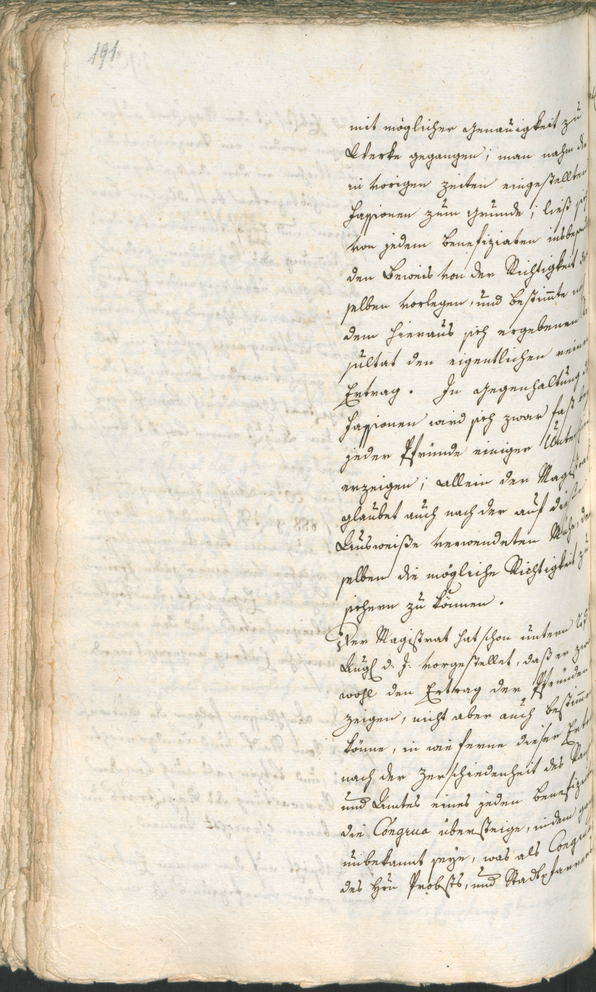 191
mit möglicher Genauigkeit zu
Werke gegangen; man nahm die
in vorigen Zeiten eingestellten
Fassionen zum Grunde; ließ sich
von jedem Benefiziaten
den Beweis von der Richtigkeit
selben vorlegen, und bestimmte
dem hieraus sich ergebenen
sultat den eigentlichen reinen
Ertrag. In Gegenhaltung
Fassionen wird sich zwar fast
jeder Pfründe einiger
erzeigen; allein der Magistrat
glaubet auch nach der auf die
Ausweise verwendeten Mühe,
selben die mögliche Richtigkeit
sichern zu können.
Der Magistrat hat schon unterm
d. J. vorgestellet, daß er
wohl den Ertrag der Pfründen
zeigen, nicht aber auch bestimmen
könne, in wie ferne dieser
nach der Verschiedenheit des
und Amtes eines jeden
die Congrua übersteige, indem
unbekannt seye, was als
des Hrn Probsts, und Stadtpfarrers